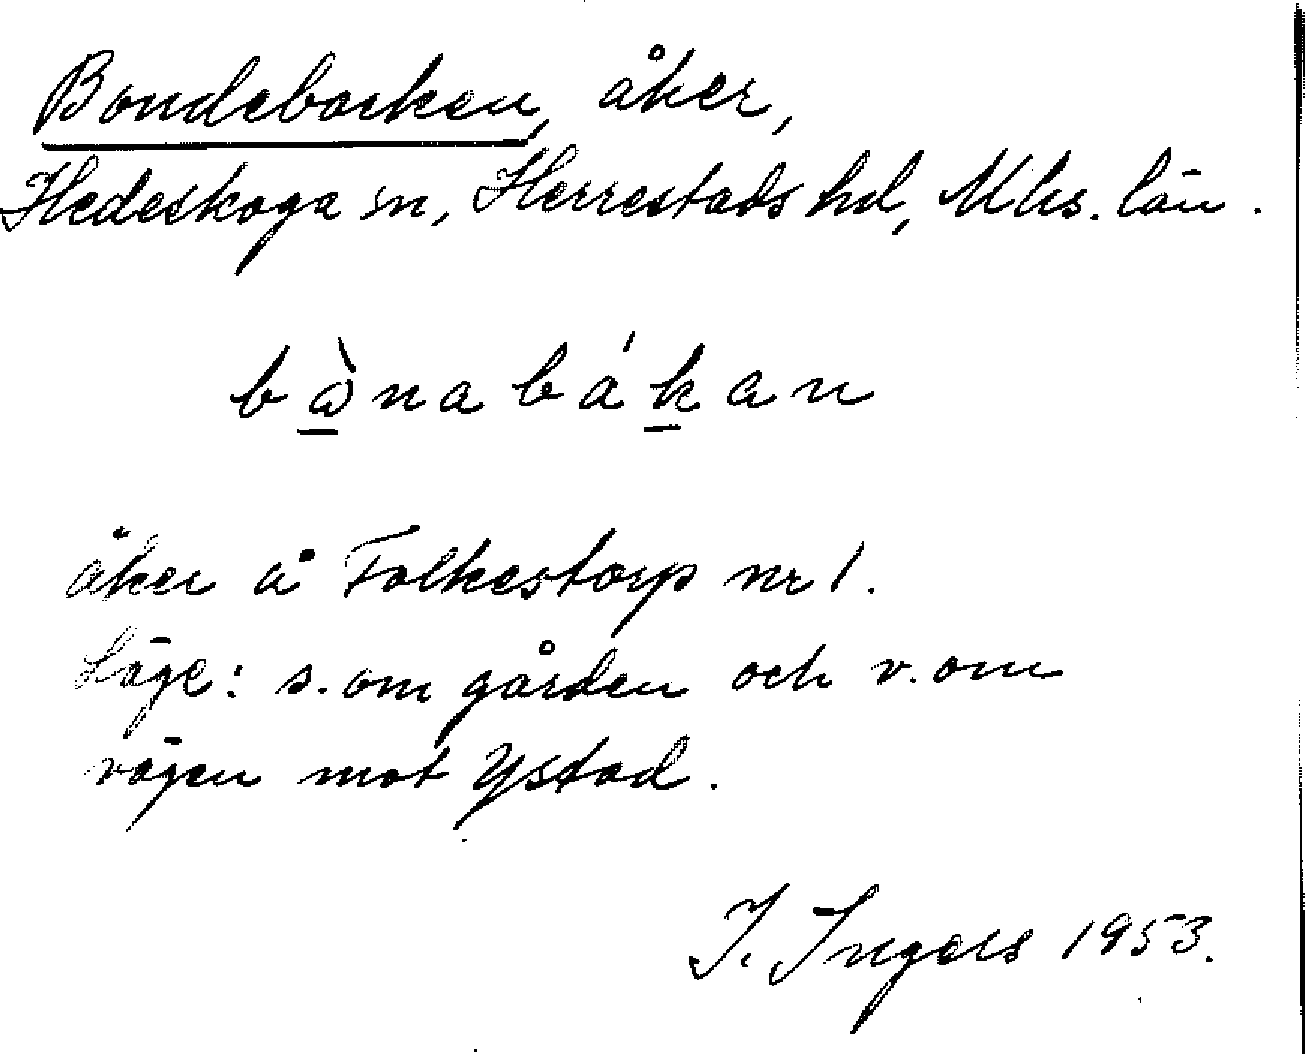 Bondebacken, åker,
Hedeskoga sn, Herrestads hd, Mhs. län.
bànabákan
åker å Folkestorp nr 1.
Läge: s. om gården och v. om
vägen mot Ystad.
I. Ingers 1953.